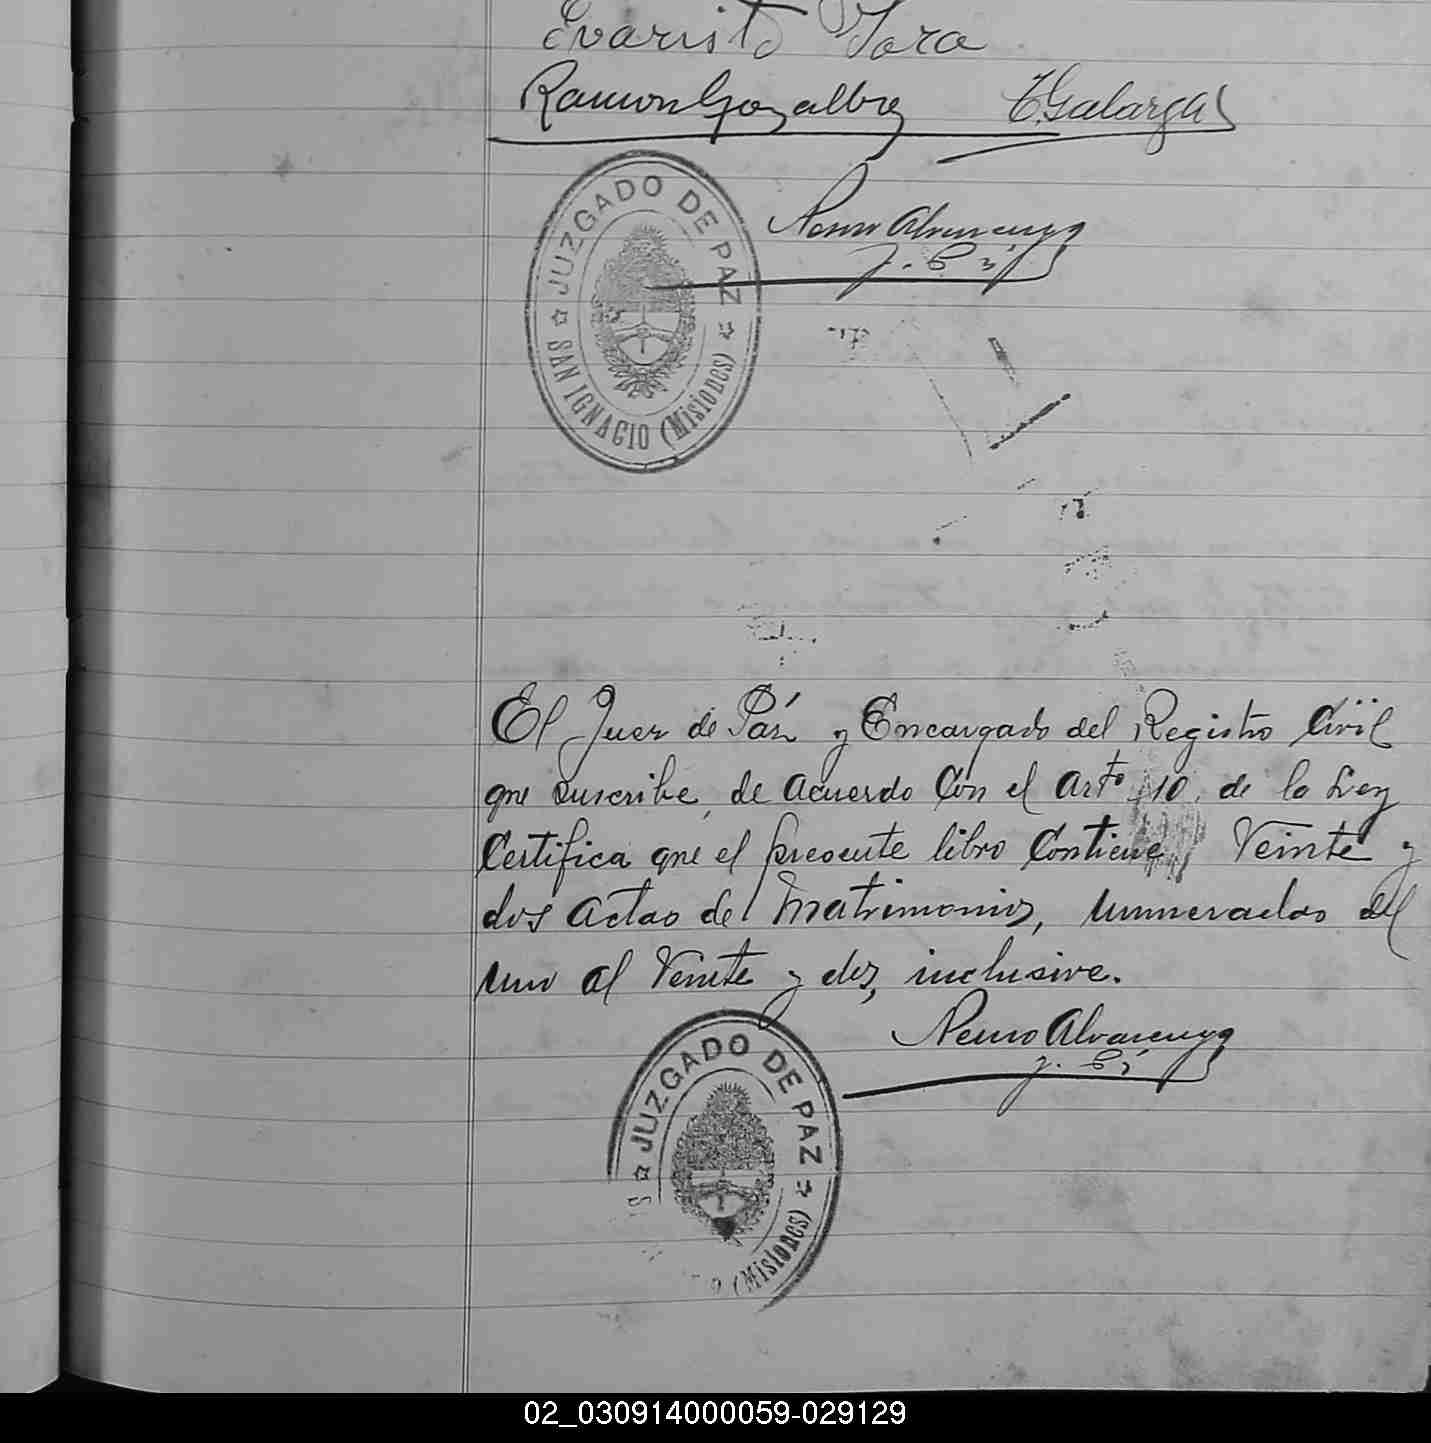 Evaristo Jara
Ramon Gozalbez T. Galarza
JUZGADO DE PAZ
SAN IGNACIO (Misiones)
Alvarenga
El Juez de Páz y Encargado del Registro Civil
que suscribe, de acuerdo con el Arto 10, de la Ley
Certifica que el presente libro Contiene Veinte y
dos actas de Matrimonios, numeradas del
uno al Veinte y dos, inclusive.
Alvarenga
JUZGADO DE PAZ
(Misiones)
02_030914000059-029129